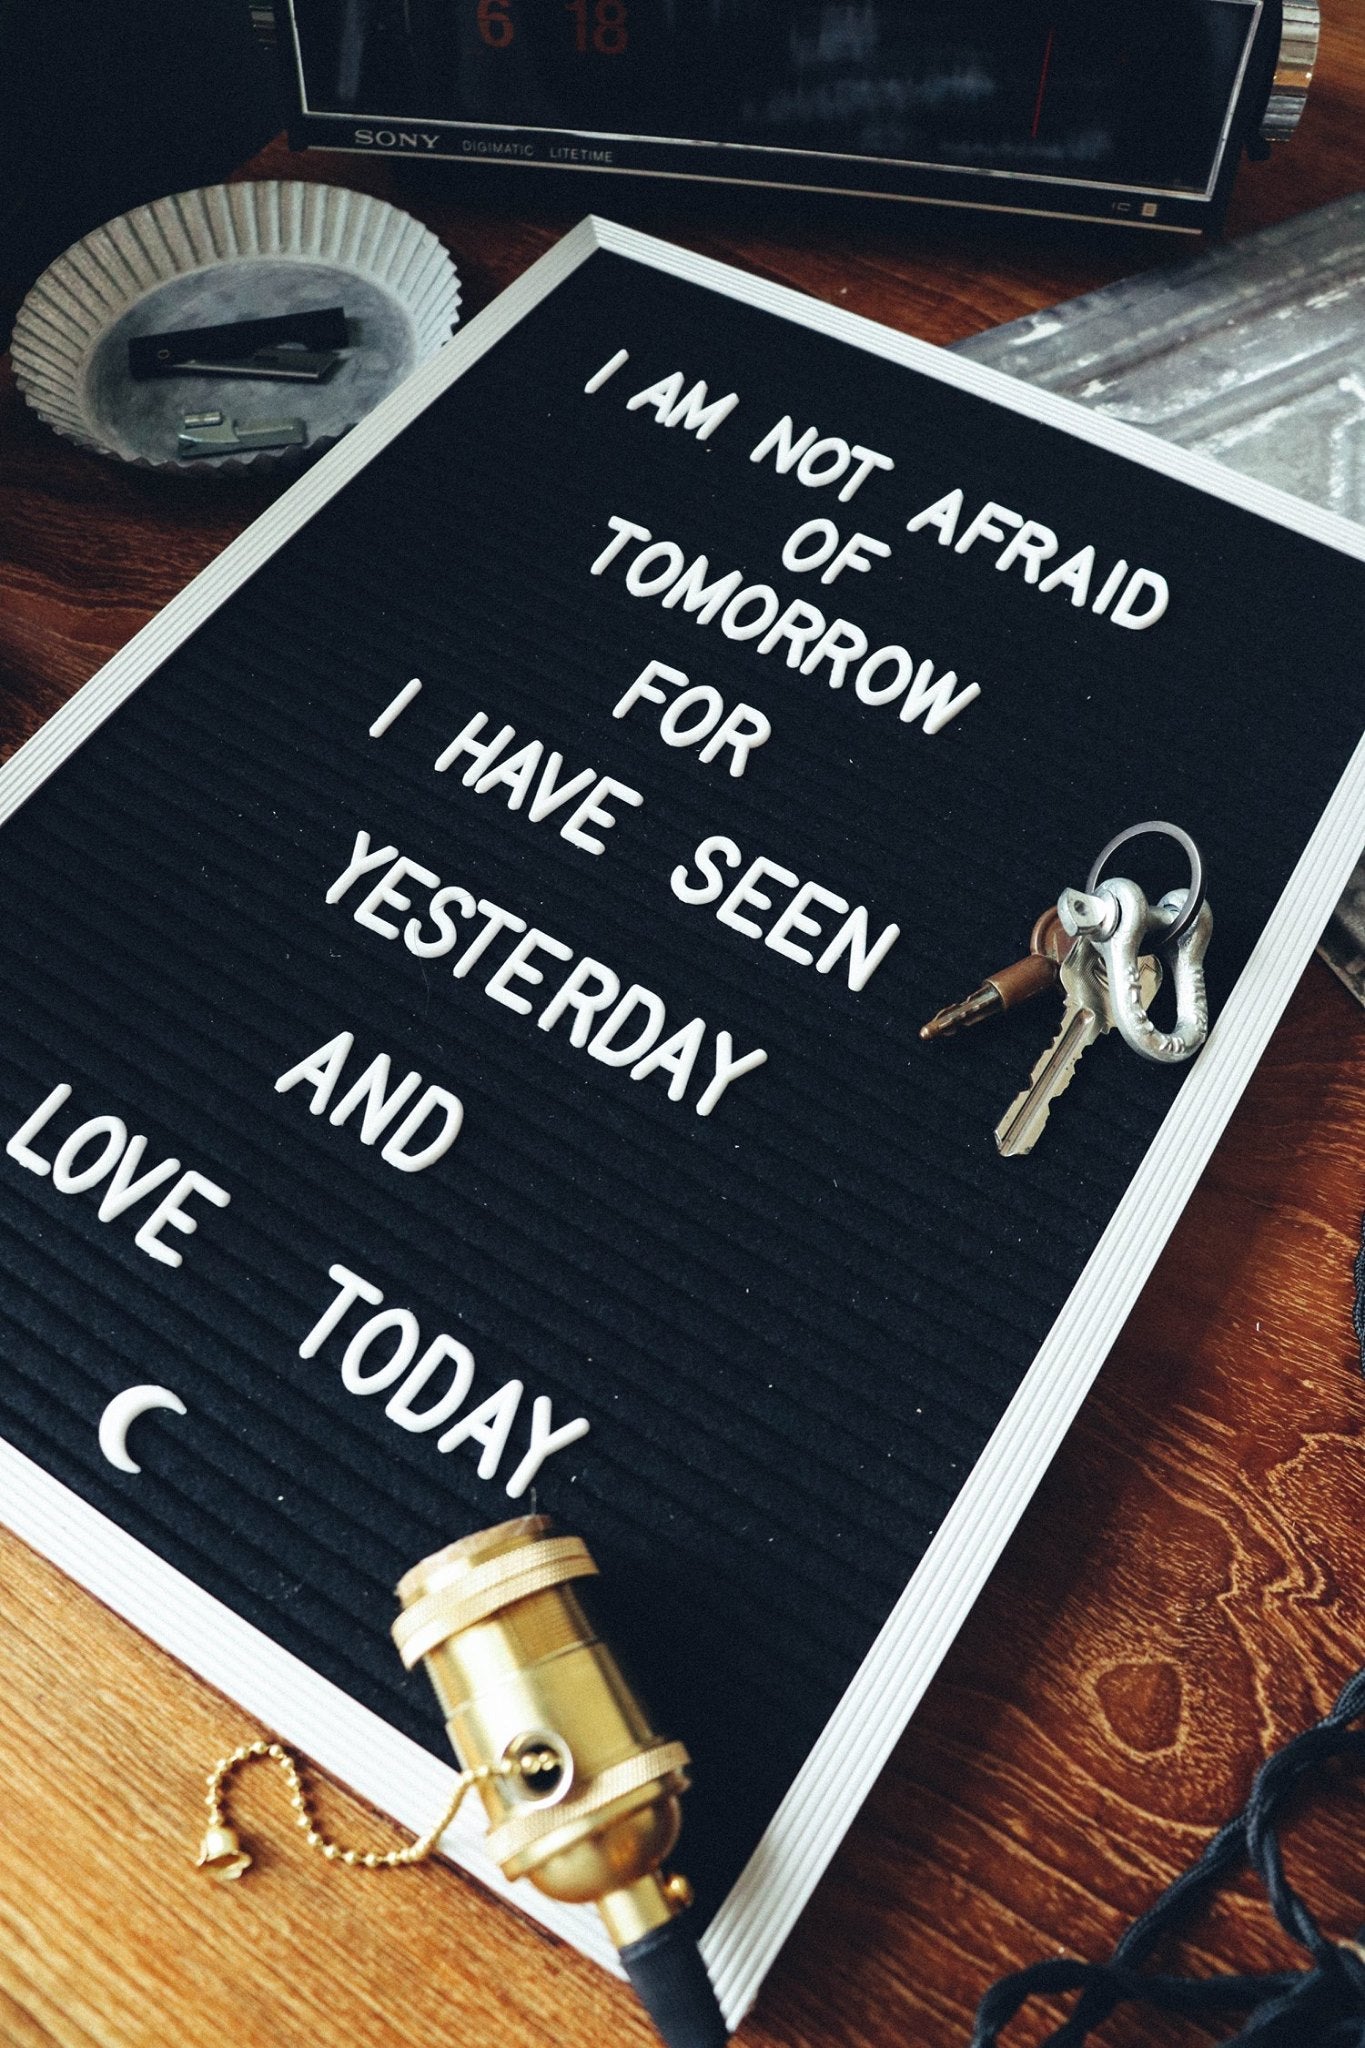 6 18
SONY DIGIMATIC LITETIME
I AM NOT AFRAID
OF
TOMORROW
FOR
I HAVE SEEN
YESTERDAY
AND
LOVE TODAY